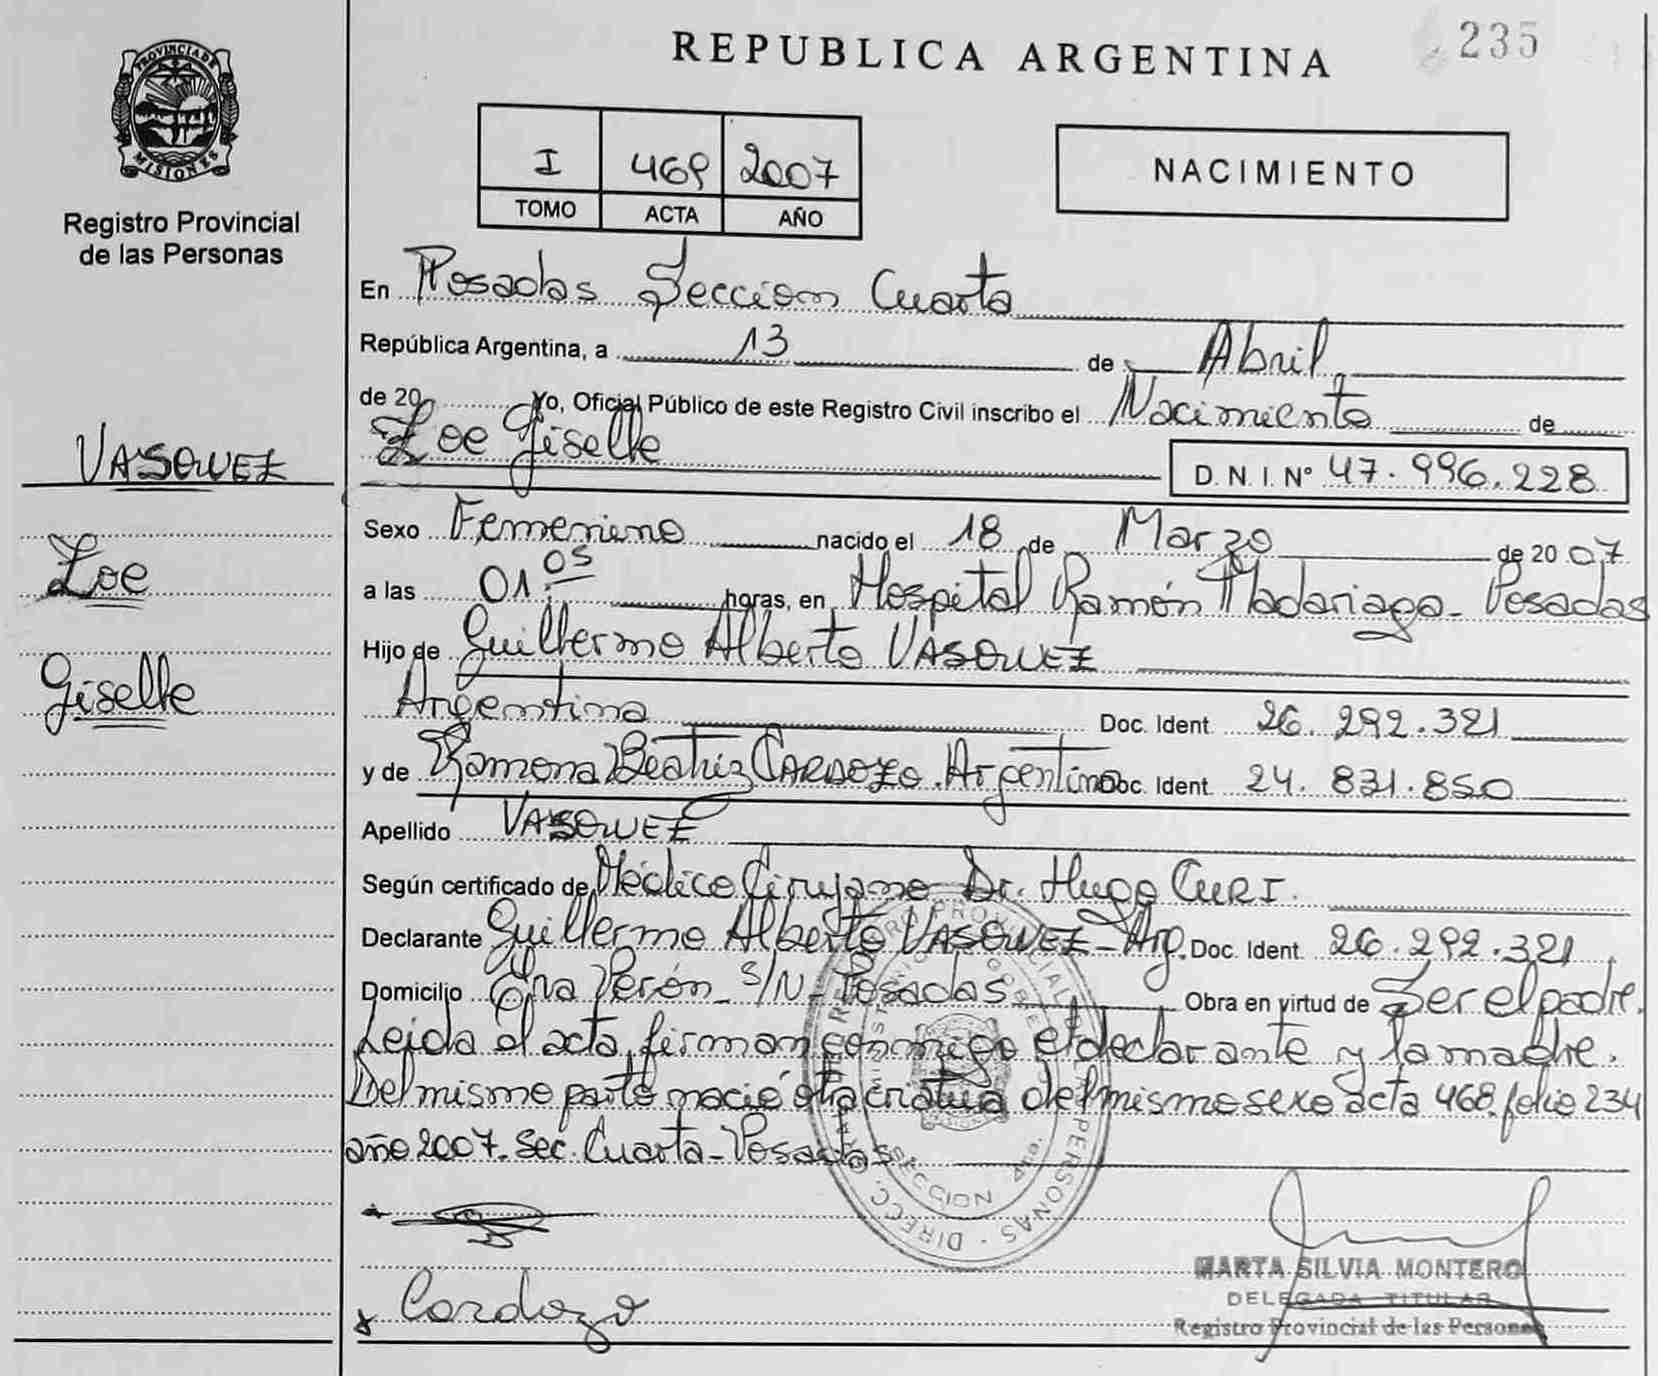 235
REPUBLICA ARGENTINA
PROVINCIA DE MISIONES
Registro Provincial
de las Personas
I 469 2007
TOMO ACTA AÑO
NACIMIENTO
En Posadas Sección Cuarta
República Argentina, a 13 de Abril
de 20 Yo, Oficial Público de este Registro Civil inscribo el Nacimiento de
Zoe Giselle
D.N.I. Nº 47.996.228
VASQUEZ
Zoe
Giselle
Sexo Femenino nacido el 18 de Marzo de 2007
a las 01:05 horas, en Hospital Ramón Madariaga - Posadas
Hijo de Guillermo Alberto VASQUEZ
Argentina Doc. Ident. 26.292.321
y de Ramona Beatriz CARDOZO. Argentina Doc. Ident. 24.831.850
Apellido VASQUEZ
Según certificado de Médico Cirujano Dr. Hugo CURI.
Declarante Guillermo Alberto VASQUEZ - Arg. Doc. Ident. 26.292.321
Domicilio Eva Perón S/N - Posadas Obra en virtud de Ser el padre.
Leida el acta, firman conmigo el declarante y la madre.
Del mismo parto nació otra criatura del mismo sexo acta 468 folio 234
año 2007. Sec. Cuarta - Posadas
Cardozo
MARTA SILVIA MONTERO
DELEGADA TITULAR
Registro Provincial de las Personas